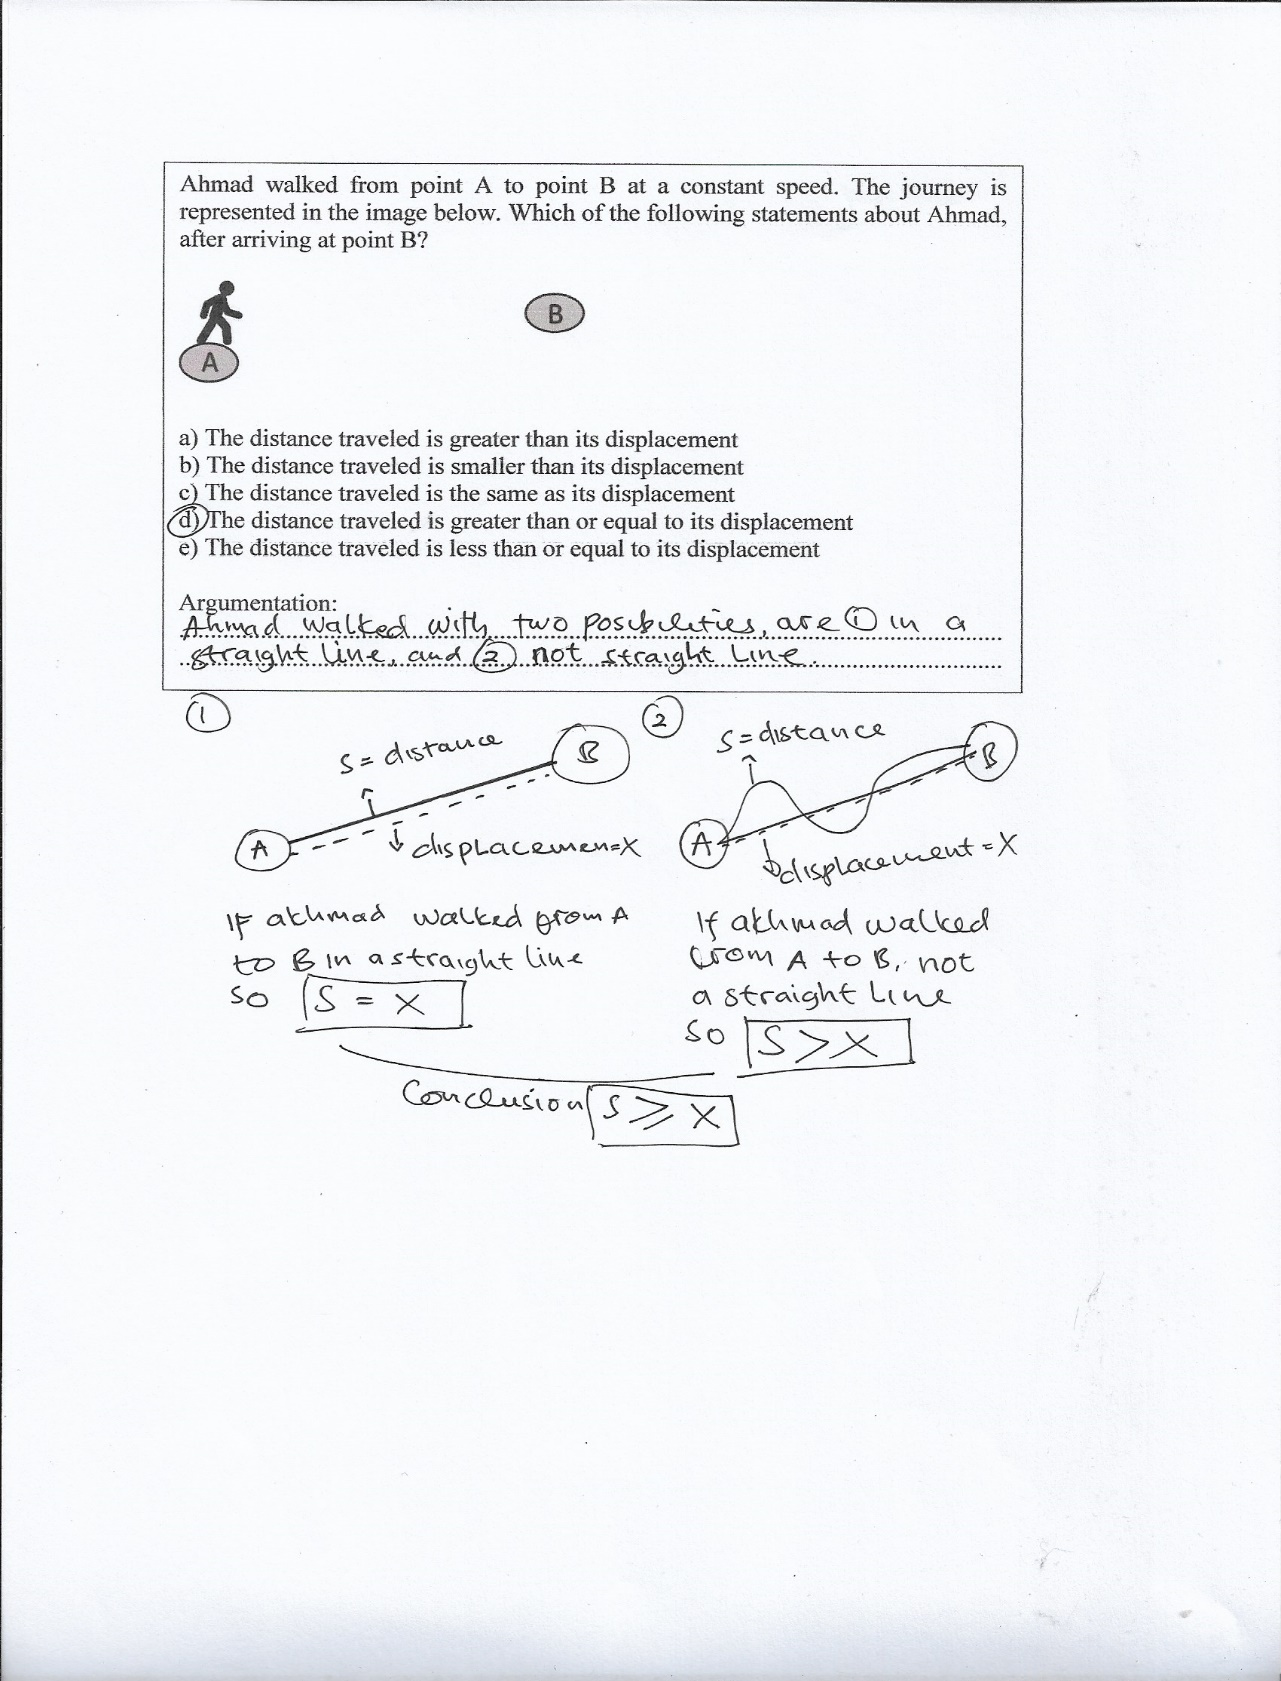 Ahmad walked from point A to point B at a constant speed. The journey is
represented in the image below. Which of the following statements about Ahmad,
after arriving at point B?
B
A
a) The distance traveled is greater than its displacement
b) The distance traveled is smaller than its displacement
c) The distance traveled is the same as its displacement
d) The distance traveled is greater than or equal to its displacement
e) The distance traveled is less than or equal to its displacement
Argumentation:
Ahmad walked with two posibilities, are ① in a
straight line, and ② not straight Line.
①
S = distance
B
A
displacemen=X
If akhmad walked from A
to B in a straight line
so S = X
②
S = distance
B
A
displacement = X
If akhmad walked
from A to B, not
a straight Line
so S > X
Conclusion S ⩾ X